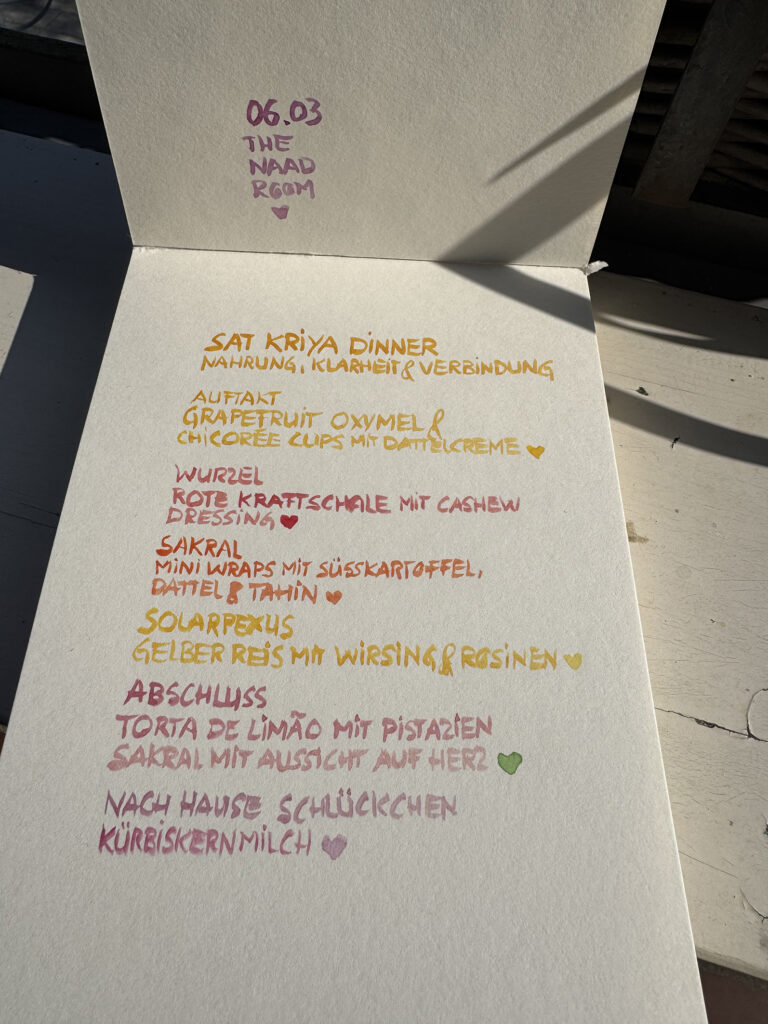 06.03
THE
NAAD
ROOM
SAT KRIYA DINNER
NAHRUNG, KLARHEIT & VERBINDUNG
AUFTAKT
GRAPEFRUIT OXYMEL &
CHICORÉE CUPS MIT DATTELCREME
WURZEL
ROTE KRAFTSCHALE MIT CASHEW
DRESSING
SAKRAL
MINI WRAPS MIT SÜSSKARTOFFEL,
DATTEL & TAHIN
SOLARPEXUS
GELBER REIS MIT WIRSING & ROSINEN
ABSCHLUSS
TORTA DE LIMÃO MIT PISTAZIEN
SAKRAL MIT AUSSICHT AUF HERZ
NACH HAUSE SCHLÜCKCHEN
KÜRBISKERNMILCH